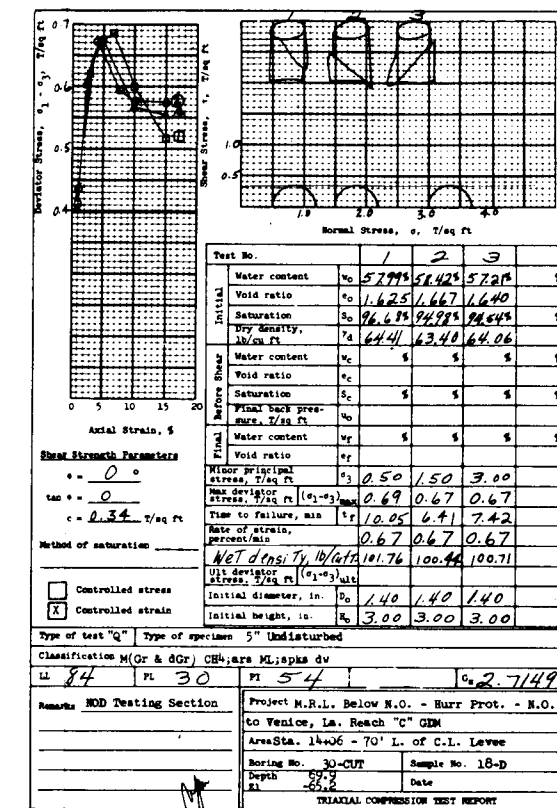 1 2 3
Deviator Stress, σ1 - σ3, T/sq ft
0.7
0.6
0.5
0.4
0 5 10 15 20
Axial Strain, %
Shear Stress, τ, T/sq ft
1.0
0.5
1.0 2.0 3.0 4.0
Normal Stress, σ, T/sq ft
Shear Strength Parameters
φ = 0 °
tan φ = 0
c = 0.34 T/sq ft
Method of saturation
Controlled stress
X Controlled strain
Test No. 1 2 3
Initial
Water content w0 57.99% 58.42% 57.21%
Void ratio e0 1.625 1.667 1.640
Saturation S0 96.68% 94.98% 94.54%
Dry density, lb/cu ft γd 64.41 63.40 64.06
Before Shear
Water content wc % % %
Void ratio ec
Saturation Sc % % %
Final back pressure, T/sq ft u0
Final
Water content wf % % %
Void ratio ef
Minor principal stress, T/sq ft σ3 0.50 1.50 3.00
Max deviator stress, T/sq ft (σ1-σ3)max 0.69 0.67 0.67
Time to failure, min tf 10.05 6.41 7.42
Rate of strain, percent/min 0.67 0.67 0.67
Wet density, lb/cu ft 101.76 100.44 100.71
Ult deviator stress, T/sq ft (σ1-σ3)ult
Initial diameter, in. D0 1.40 1.40 1.40
Initial height, in. H0 3.00 3.00 3.00
Type of test "Q" Type of specimen 5" Undisturbed
Classification M(Gr & dGr) CH4;ars ML;spks dw
LL 84 PL 30 PI 54 Gs 2.7149
Remarks NOD Testing Section
Project M.R.L. Below N.O. - Hurr Prot. - N.O.
to Venice, La. Reach "C" GDM
Area Sta. 14+06 - 70' L. of C.L. Levee
Boring No. 30-CUT Sample No. 18-D
Depth 69.9
El -65.2 Date
TRIAXIAL COMPRESSION TEST REPORT